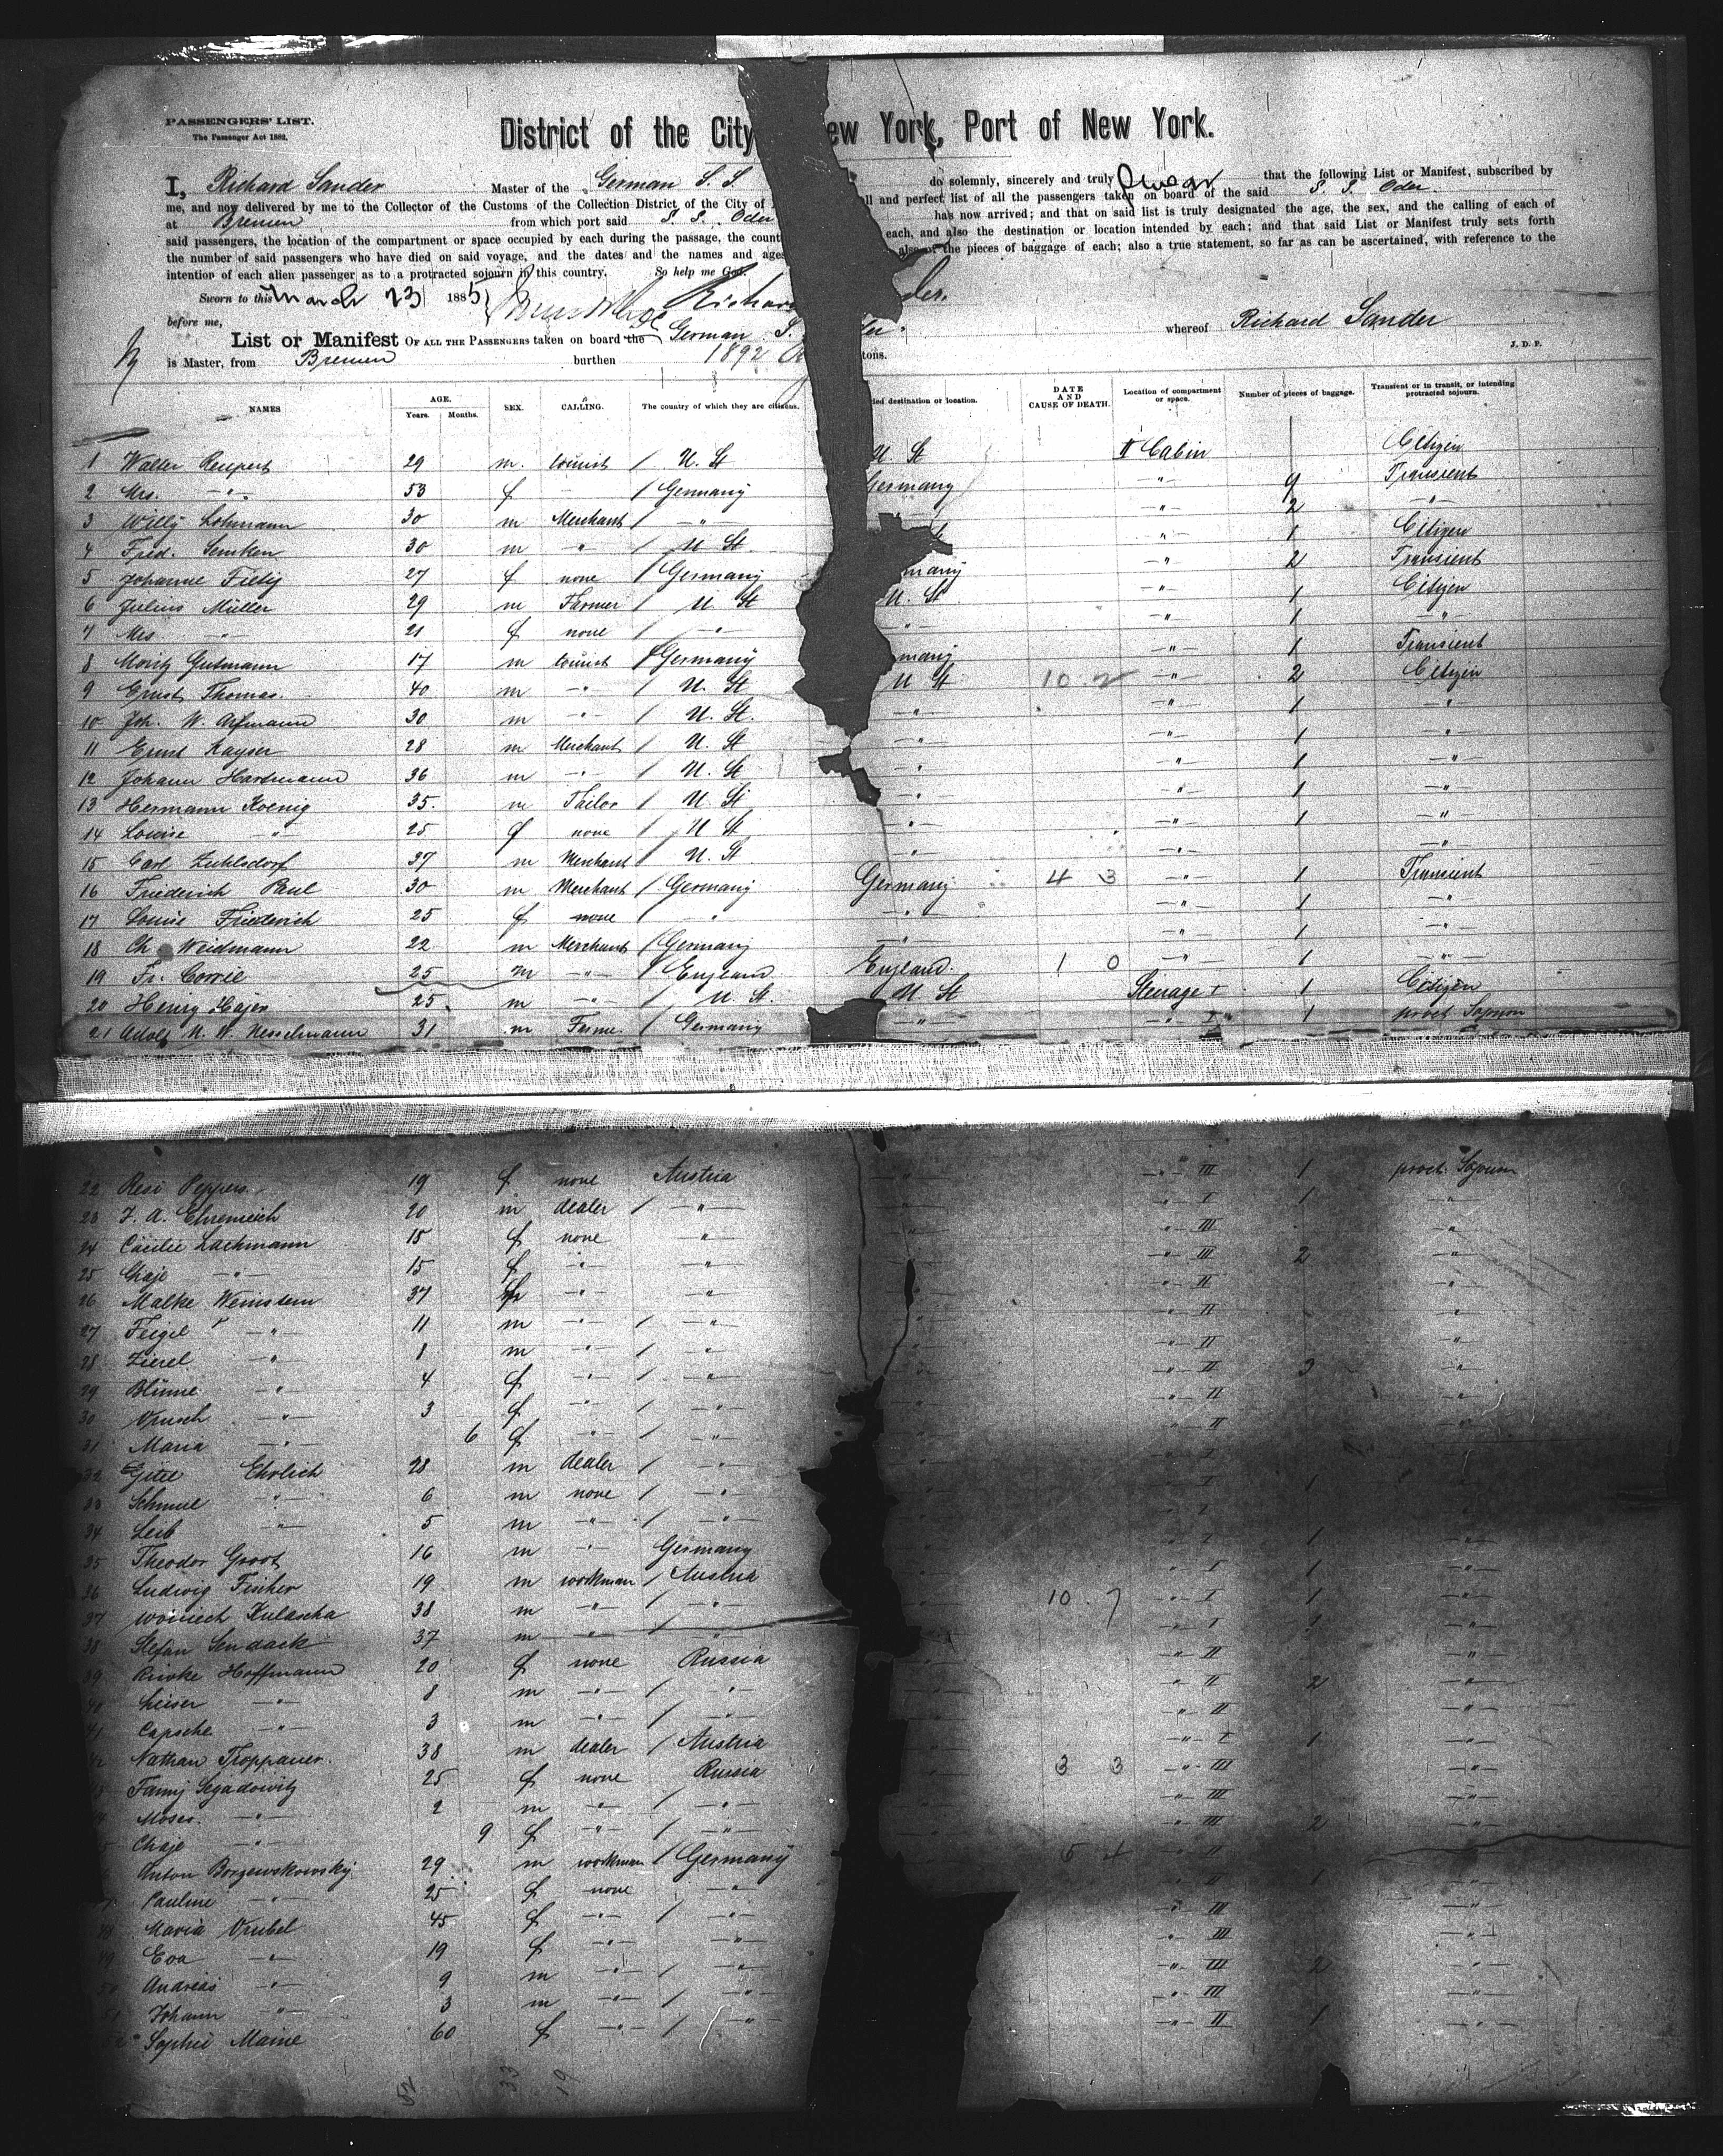 PASSENGERS' LIST.
The Passenger Act 1882.
District of the City ew York, Port of New York.
I, Richard Sander Master of the German S. S. do solemnly, sincerely and truly swear that the following List or Manifest, subscribed by
me, and now delivered by me to the Collector of the Customs of the Collection District of the City of ll and perfect list of all the passengers taken on board of the said S. S. Oder
at Bremen from which port said S. S. Oder has now arrived; and that on said list is truly designated the age, the sex, and the calling of each of
said passengers, the location of the compartment or space occupied by each during the passage, the count each, and also the destination or location intended by each; and that said List or Manifest truly sets forth
the number of said passengers who have died on said voyage, and the dates and the names and ages also of the pieces of baggage of each; also a true statement, so far as can be ascertained, with reference to the
intention of each alien passenger as to a protracted sojourn in this country. So help me God.
Sworn to this March 23 1885 Richar der.
before me,
List or Manifest OF ALL THE PASSENGERS taken on board the German S. der. whereof Richard Sander
is Master, from Bremen burthen 1892 tons. J. D. P.
NAMES AGE. Years. Months. SEX. CALLING. The country of which they are citizens. ded destination or location. DATE AND CAUSE OF DEATH. Location of compartment or space. Number of pieces of baggage. Transient or in transit, or intending protracted sojourn.
1 Walter Reupert 29 m. tourist / U. St U St II Cabin Citizen
2 Mrs. —"— 53 f / Germany Germany —"— 9 Transient
3 Willy Lohmann 30 m Merchant / —"— —"— 2 —"—
4 Fred. Semken 30 m —"— / U St. —"— 1 Citizen
5 Johanne Fietig 27 f none / Germany many —"— 2 Transient
6 Julius Müller 29 m Farmer / U St U. St —"— 1 Citizen
7 Mrs —"— 21 f none / —"— —"— —"— 1 "
8 Moritz Gutmann 17 m tourist / Germany many —"— 1 Transient
9 Ernst Thomas 40 m —"— / U. St U St 10 2 —"— 2 Citizen
10 Joh. W. Arfmann 30 m —"— / U. St. —"— —"— 1 —"—
11 Ernst Kayser 28 m Merchant / U. St —"— —"— 1 —"—
12 Johann Hartmann 36 m —"— / U. St —"— —"— 1 —"—
13 Hermann Koenig 35. m Tailor / U St —"— —"— 1 —"—
14 Louise —"— 25 f none / U St —"— —"— 1 —"—
15 Carl Zuhlsdorf 37 m Merchant / U. St —"— —"— —"—
16 Friederich Paul 30 m Merchant / Germany Germany 4 3 —"— 1 Transient
17 Louise Friederich 25 f none / " —"— —"— 1 —"—
18 Ch Weidmann 22 m Merchant / Germany —"— —"— 1 —"—
19 Fr. Corrie 25 m —"— / England England. 1 0 —"— 1 —"—
20 Henry Hajen 25 m —"— / U. St. U St Steerage I 1 Citizen
21 Adolf N. W. Nesselmann 31 m Farmer / Germany " —"— I 1 prot Sojourn
22 Resi Peppers 19 f none Austria —"— —"— III 1 proct. Sojourn
23 J. A. Ehrenreich 20 m dealer / —"— —"— I 1 —"—
24 Cäcilie Lachmann 18 f none " —"— III "
25 Chaje —"— 15 f —"— —"— —"— III 2 —"—
26 Malke Weinstein 37 f —"— —"— —"— II —"—
27 Feigel —"— 11 m —"— / —"— —"— II "
28 Zierel —"— 1 m —"— / —"— —"— II —"—
29 Blume —"— 4 f —"— / —"— —"— II 3 —"—
30 —"— 3 f —"— / —"— —"— II
31 Maria —"— 6 f —"— / —"— —"— II —"—
32 Gittel Ehrlich 28 m dealer / —"— —"— I
33 Schmul —"— 6 m none / —"— —"— I 1
34 Leib —"— 5 m —"— / —"— —"— I
35 Theodor Groot 16 m —"— Germany —"— I 1 —"—
36 Ludwig Fischer 19 m workman / Austria —"— I 1 —"—
37 Woiciech Kulascha 38 m —"— / —"— 10 7 —"— I 1 —"—
38 Stefan Sendack 37 m " / " —"— I 1 —"—
39 Rivke Hoffmann 20 f none Russia —"— II —"—
40 Leiser —"— 8 m —"— / —"— —"— II 2 —"—
41 Capsche —"— 3 m —"— / —"— —"— II —"—
42 Nathan Troppauer. 38 m dealer / Austria —"— I 1 —"—
43 Fanny Segadowitz 25 f none Russia 3 3 —"— III —"—
Moses. —"— 2 m —"— / —"— —"— III —"—
Chaje —"— 9 f —"— / —"— —"— III 2 —"—
Anton Borzewskowsky 29 m workman / Germany 5 4 —"— II
Pauline —"— 25 f none —"— —"— II 1 —"—
48 Maria Vrubel 45 f —"— / —"— —"— III —"—
49 Eva —"— 19 f —"— —"— —"— III —"—
50 Andreas —"— 9 m —"— / —"— —"— III 2 —"—
51 Johann —"— 3 m —"— / —"— —"— III —"—
Sophie Maine 60 f —"— / —"— —"— II 1 —"—
52 33 19